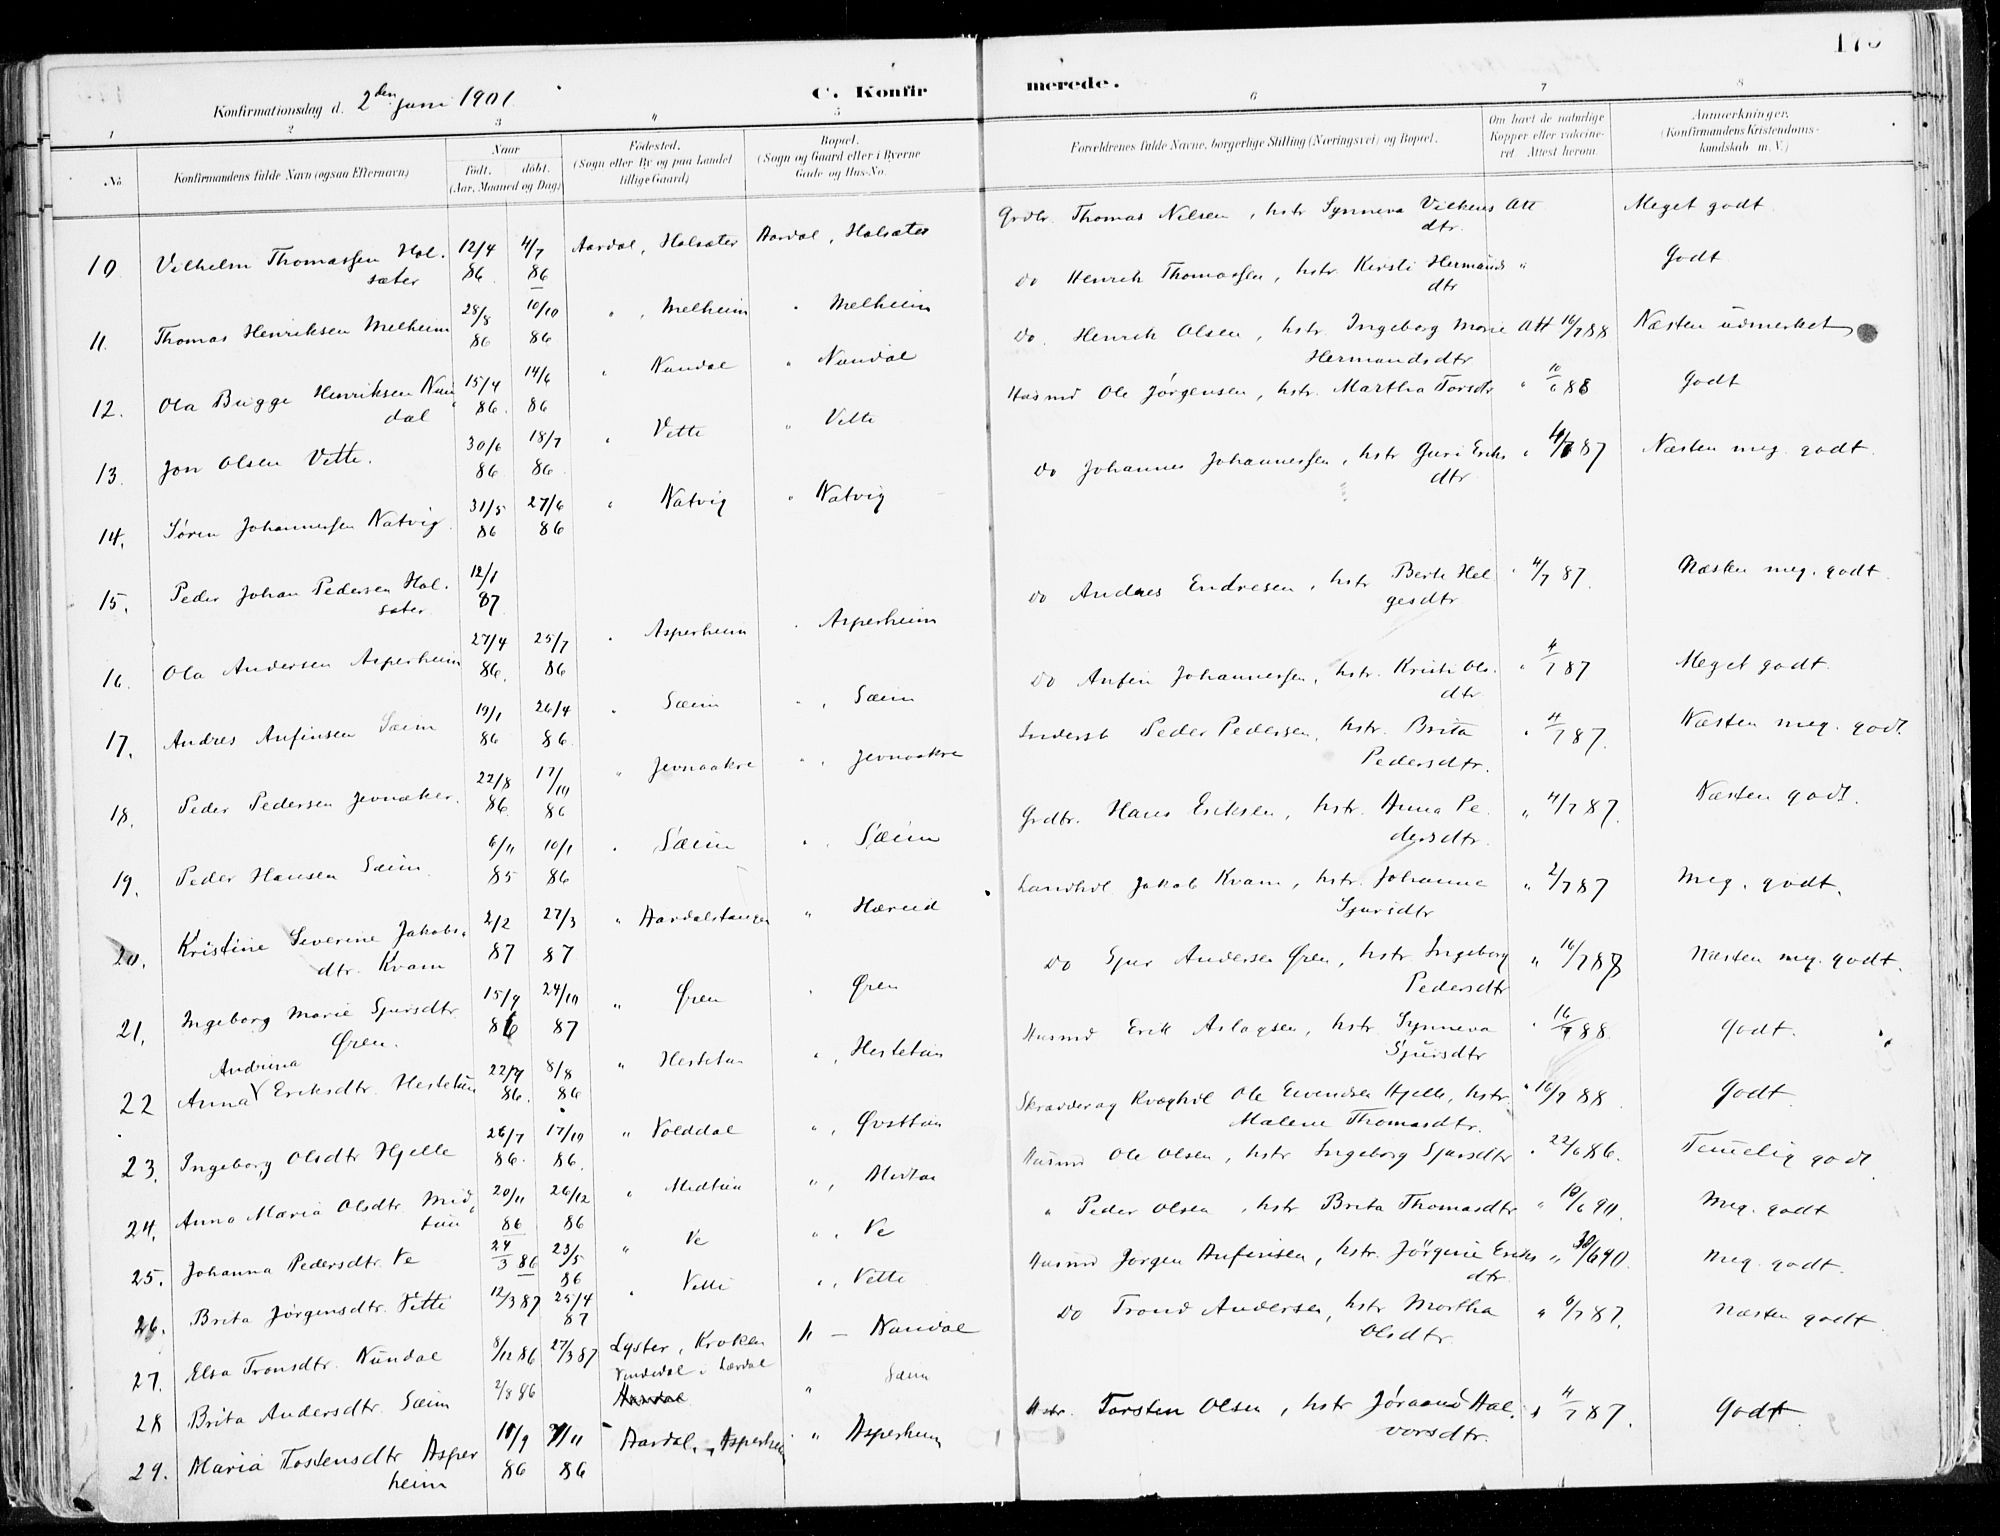 Konfirmationsdag d. 2den juni 1901
C. Konfirmerede.
1 2 3 " 5 6 7 8
No.
Konfirmandens fulde Navn (ogsaa Efternavn)
Naar
født. døbt.
(Aar, Maaned og Dag)
Fødested.
(Sogn eller By og paa Landet
tillige Gaard)
Bopæl.
(Sogn og Gaard eller i Byerne
Gade og Hus-No.
Forældrenes fulde Navne, borgerlige Stilling (Næringsvei) og Bopæl.
Om havt de naturlige
Kopper eller vaccine-
ret Attest herom.
Anmærkninger.
(Konfirmandens Kristendoms-
kundskab m. V.)
10. Vilhelm Thomassen Hol-
sæter 12/4 86. 4/7 86 Aardal, Holsæter Aardal, Holsæter Grdbr. Thomas Nilsen, hstr Synneva Vilkens
dtr. Att Meget godt
11. Thomas Henriksen Melheim 28/8 86 10/10 86 " , Melheim " Melheim Do Henrik Thomassen, hstr. Kirsti Hermunds
dtr " Godt
12. Ola Brigge Henriksen Nun-
dal 15/4 86. 14/6 86 " Nundal " Nundal Do. Henrik Olsen, hstr. Ingeborg Marie
Hermundsdtr Att 16/7 88 Næsten udmerket
13. Jon Olsen Vette. 30/6 86 18/7 86 " Vette " Vette Husmd Ole Jørgensen, hstr. Martha Torsdtr " 10/6 88 Godt
14. Søren Johannessen Natvig. 31/5 86 27/6 86 " Natvig " Natvig Do Johannes Johannessen, hstr Guri Eriks
dtr " 4/7 87 Næsten meg. godt.
15. Peder Johan Pedersen Hol-
sæter. 12/1 87
16. Ola Andersen Asperheim 27/4 86. 25/7 86 " Asperheim " Asperheim Do Andres Endresen, hstr Berte Hel
gesdtr " 4/7 87. Næsten meg. godt.
17. Andres Anfinsen Sæim 19/1 86 26/4 86 " Sæim " , Sæim Do Anfin Johannessen, hstr. Kristi Ols-
dtr " 4/7 87 Meget godt.
18. Peder Pedersen Jevnaker. 22/8 86 17/10 86 " Jevnaakre " , Jevnaakre Inderst Peder Pedersen, hstr. Brita
Pedersdtr. " 4/7 87. Næsten meg. godt.
19. Peder Hansen Sæim. 6/11 85 10/1 86 " Sæim " , Sæim Grdbr. Hans Eriksen, hstr. Anna Pe-
dersdtr. " 4/7 87. Næsten godt.
20. Kristine Severine Jakobs-
dtr. Kvam 2/2 87 27/3 87 " Aardalstangen " Hæreid Landhdl Jakob Kvam, hstr. Johanne
Sjursdtr " 2/7 87 Meg. godt.
21. Ingeborg Marie Sjursdtr
Øren. 15/9 86 24/10 87 " Øren " Øren Do Sjur Andersen Øren, hstr. Ingeborg
Pedersdtr " 16/7 88 Næsten meg. godt.
Andrina
22 Anna Eriksdtr. Hestetun 22/7 86. 8/8 86 " Hestetun " , Hestetun Husmd Erik Aslagsen, hstr. Synneva
Sjursdtr " 16/7 88 Godt.
23. Ingeborg Olsdtr Hjelle 26/7 86. 17/10 86. " Volddal " , Øvsttun Skrædder og Kvæghdl Ole Eivindsen Hjelle, hstr.
Malene Thomasdtr. " 16/7 88 Godt
24. Anna Maria Olsdtr. Mid-
tun 20/11 86 26/12 86 " Midtun " , Midtun Husmd Ole Olsen, hstr Ingeborg Sjursdtr " 22/6 86. Temmelig godt
25. Johanna Pedersdtr. Ve 24/3 86 23/5 86 " Ve " , Ve " Peder Olsen, hstr Brita Thomasdtr " 10/6 90. Meg. godt
26. Brita Jørgensdtr. Vetti 12/3 87 25/4 87 " Vetti " , Vette Husmd Jørgen Anfinsen, hstr. Jørgine Eriks
dtr. " 30/6 90. Meg. godt.
27. Elsa Tronsdtr. Nundal 8/12 86 27/3 87 Lyster, Kroken " — Nundal Do Trond Andersen, hstr Martha
Olsdtr. " 6/7 87. Næsten godt.
28 Brita Andersdtr. Sæim 2/8 86 Vindedal i Lærdal " Sæim
29. Maria Tostensdtr Asper
heim 10/9 86 7/11 86 Aardal, Asperheim " Asperheim Torsten Olsen, hstr Jøraand Hal-
vorsdtr. " 4/7 87. Godt.